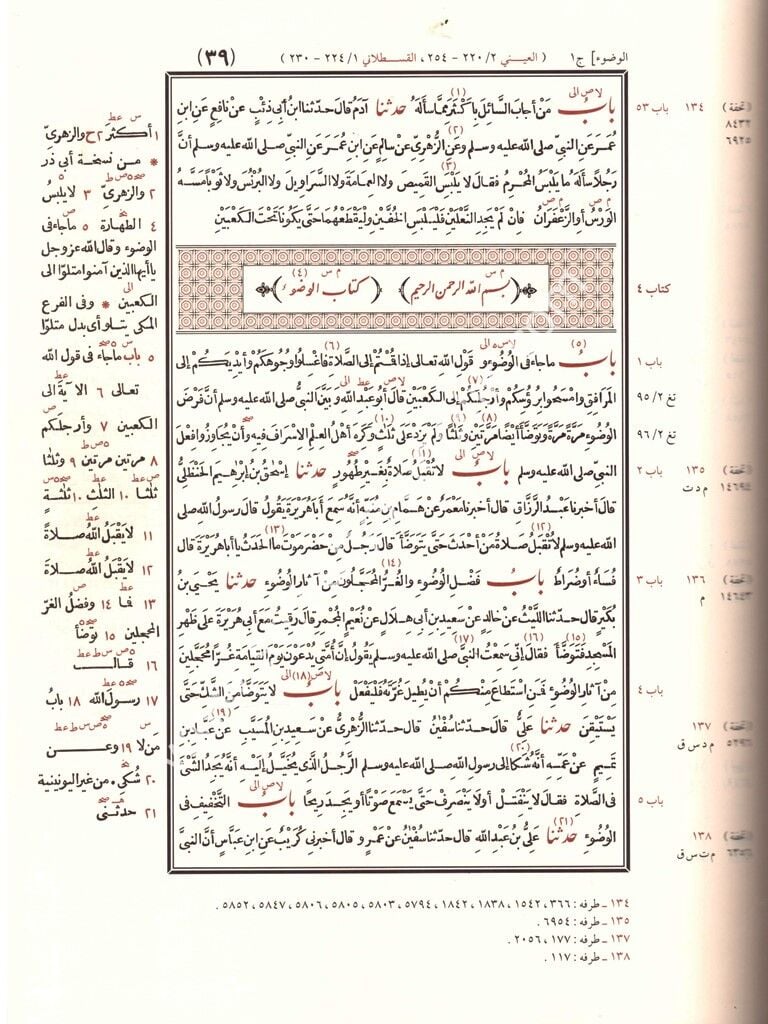 الوضوء] ج١ (العيني ٢/ ٢٢٠ - ٢٥٤، القسطلاني ١/ ٢٢٤ - ٢٣٠) (٣٩)
بابُ مَنْ أجابَ السائلَ بأكثرَ مما سأله حدثنا آدم قال حدثنا ابن أبي ذئب عن نافع عن ابن
عمر عن النبي صلى الله عليه وسلم وعن الزهري عن سالم عن ابن عمر عن النبي صلى الله عليه وسلم أن
رجلا سأله ما يلبس المحرم فقال لا يلبس القميص ولا العمامة ولا السراويل ولا البرنس ولا ثوبا مسه
الورس أو الزعفران فإن لم يجد النعلين فليلبس الخفين وليقطعهما حتى يكونا تحت الكعبين
(بسم الله الرحمن الرحيم) (كتاب الوضوء)
باب ما جاء في الوضوء و قول الله تعالى إذا قمتم إلى الصلاة فاغسلوا وجوهكم وأيديكم إلى
المرافق وامسحوا برؤسكم وأرجلكم إلى الكعبين قال أبو عبد الله وبين النبي صلى الله عليه وسلم أن فرض
الوضوء مرة مرة وتوضأ أيضا مرتين وثلثا ولم يزد على ثلث وكره أهل العلم الإسراف فيه وأن يجاوزوا فعل
النبي صلى الله عليه وسلم باب لا تقبل صلاة بغير طهور حدثنا إسحق بن إبرهيم الحنظلي
قال أخبرنا عبد الرزاق قال أخبرنا معمر عن همام بن منبه أنه سمع أبا هريرة يقول قال رسول الله صلى
الله عليه وسلم لا تقبل صلاة من أحدث حتى يتوضأ قال رجل من حضرموت ما الحدث يا أبا هريرة قال
فساء أو ضراط باب فضل الوضوء والغر المحجلون من آثار الوضوء حدثنا يحيى بن
بكير قال حدثنا الليث عن خالد عن سعيد بن أبي هلال عن نعيم المجمر قال رقيت مع أبي هريرة على ظهر
المسجد فتوضأ فقال إني سمعت النبي صلى الله عليه وسلم يقول إن أمتي يدعون يوم القيامة غرا محجلين
من آثار الوضوء فمن استطاع منكم أن يطيل غرته فليفعل باب لا يتوضأ من الشك حتى
يستيقن حدثنا علي قال حدثنا سفين قال حدثنا الزهري عن سعيد بن المسيب عن عباد بن
تميم عن عمه أنه شكا إلى رسول الله صلى الله عليه وسلم الرجل الذي يخيل إليه أنه يجد الشئ
في الصلاة فقال لا ينفتل أو لا ينصرف حتى يسمع صوتا أو يجد ريحا باب التخفيف في
الوضوء حدثنا علي بن عبد الله قال حدثنا سفين عن عمرو قال أخبرني كريب عن ابن عباس أن النبي
١٣٤ باب ٥٣
(تحفة)
٨٤٣٢
٦٩٢٥
كتاب ٤
باب ١
تغ ٢/ ٩٥
تغ ٢/ ٩٦
(تحفة) ١٣٥ باب ٢
١٤٦٩٤ م د ت
(تحفة) ١٣٦ باب ٣
١٤٦٤٣ م
باب ٤
(تحفة) ١٣٧
٥٢٩٦ م د س ق
باب ٥
(تحفة) ١٣٨
٦٣٥٦ م ت س ق
١ أكثر ٢ ح والزهري
* من نسخة أبي ذر
٢ والزهري ٣ لا يلبس
٤ الطهارة ٥ ما جاء في
الوضوء وقال الله عز وجل
يا أيها الذين آمنوا متلوا الى
الكعبين * وفي الفرع
المكي يتلو أي بدل متلوا
٥ باب ما جاء في قول الله
تعالى ٦ الآية الى
الكعبين ٧ وأرجلكم
٨ مرتين مرتين ٩ وثلثا
ثلثا ١٠ الثلث ١٠ ثلثة
١١ لا يقبل الله صلاة
١٢ لا يقبل الله صلاة
١٣ فما ١٤ وفضل الغر
المحجلين ١٥ توضأ
١٦ قال
١٧ رسول الله ١٨ باب
من لا ١٩ وعن
٢٠ شكي. من غير اليونينية
٢١ حدثني
١٣٤ - طرفه: ٣٦٦، ١٥٤٢، ١٨٣٨، ١٨٤٢، ٥٧٩٤، ٥٨٠٣، ٥٨٠٥، ٥٨٠٦، ٥٨٤٧، ٥٨٥٢.
١٣٥ - طرفه: ٦٩٥٤.
١٣٧ - طرفه: ١٧٧، ٢٠٥٦.
١٣٨ - طرفه: ١١٧.